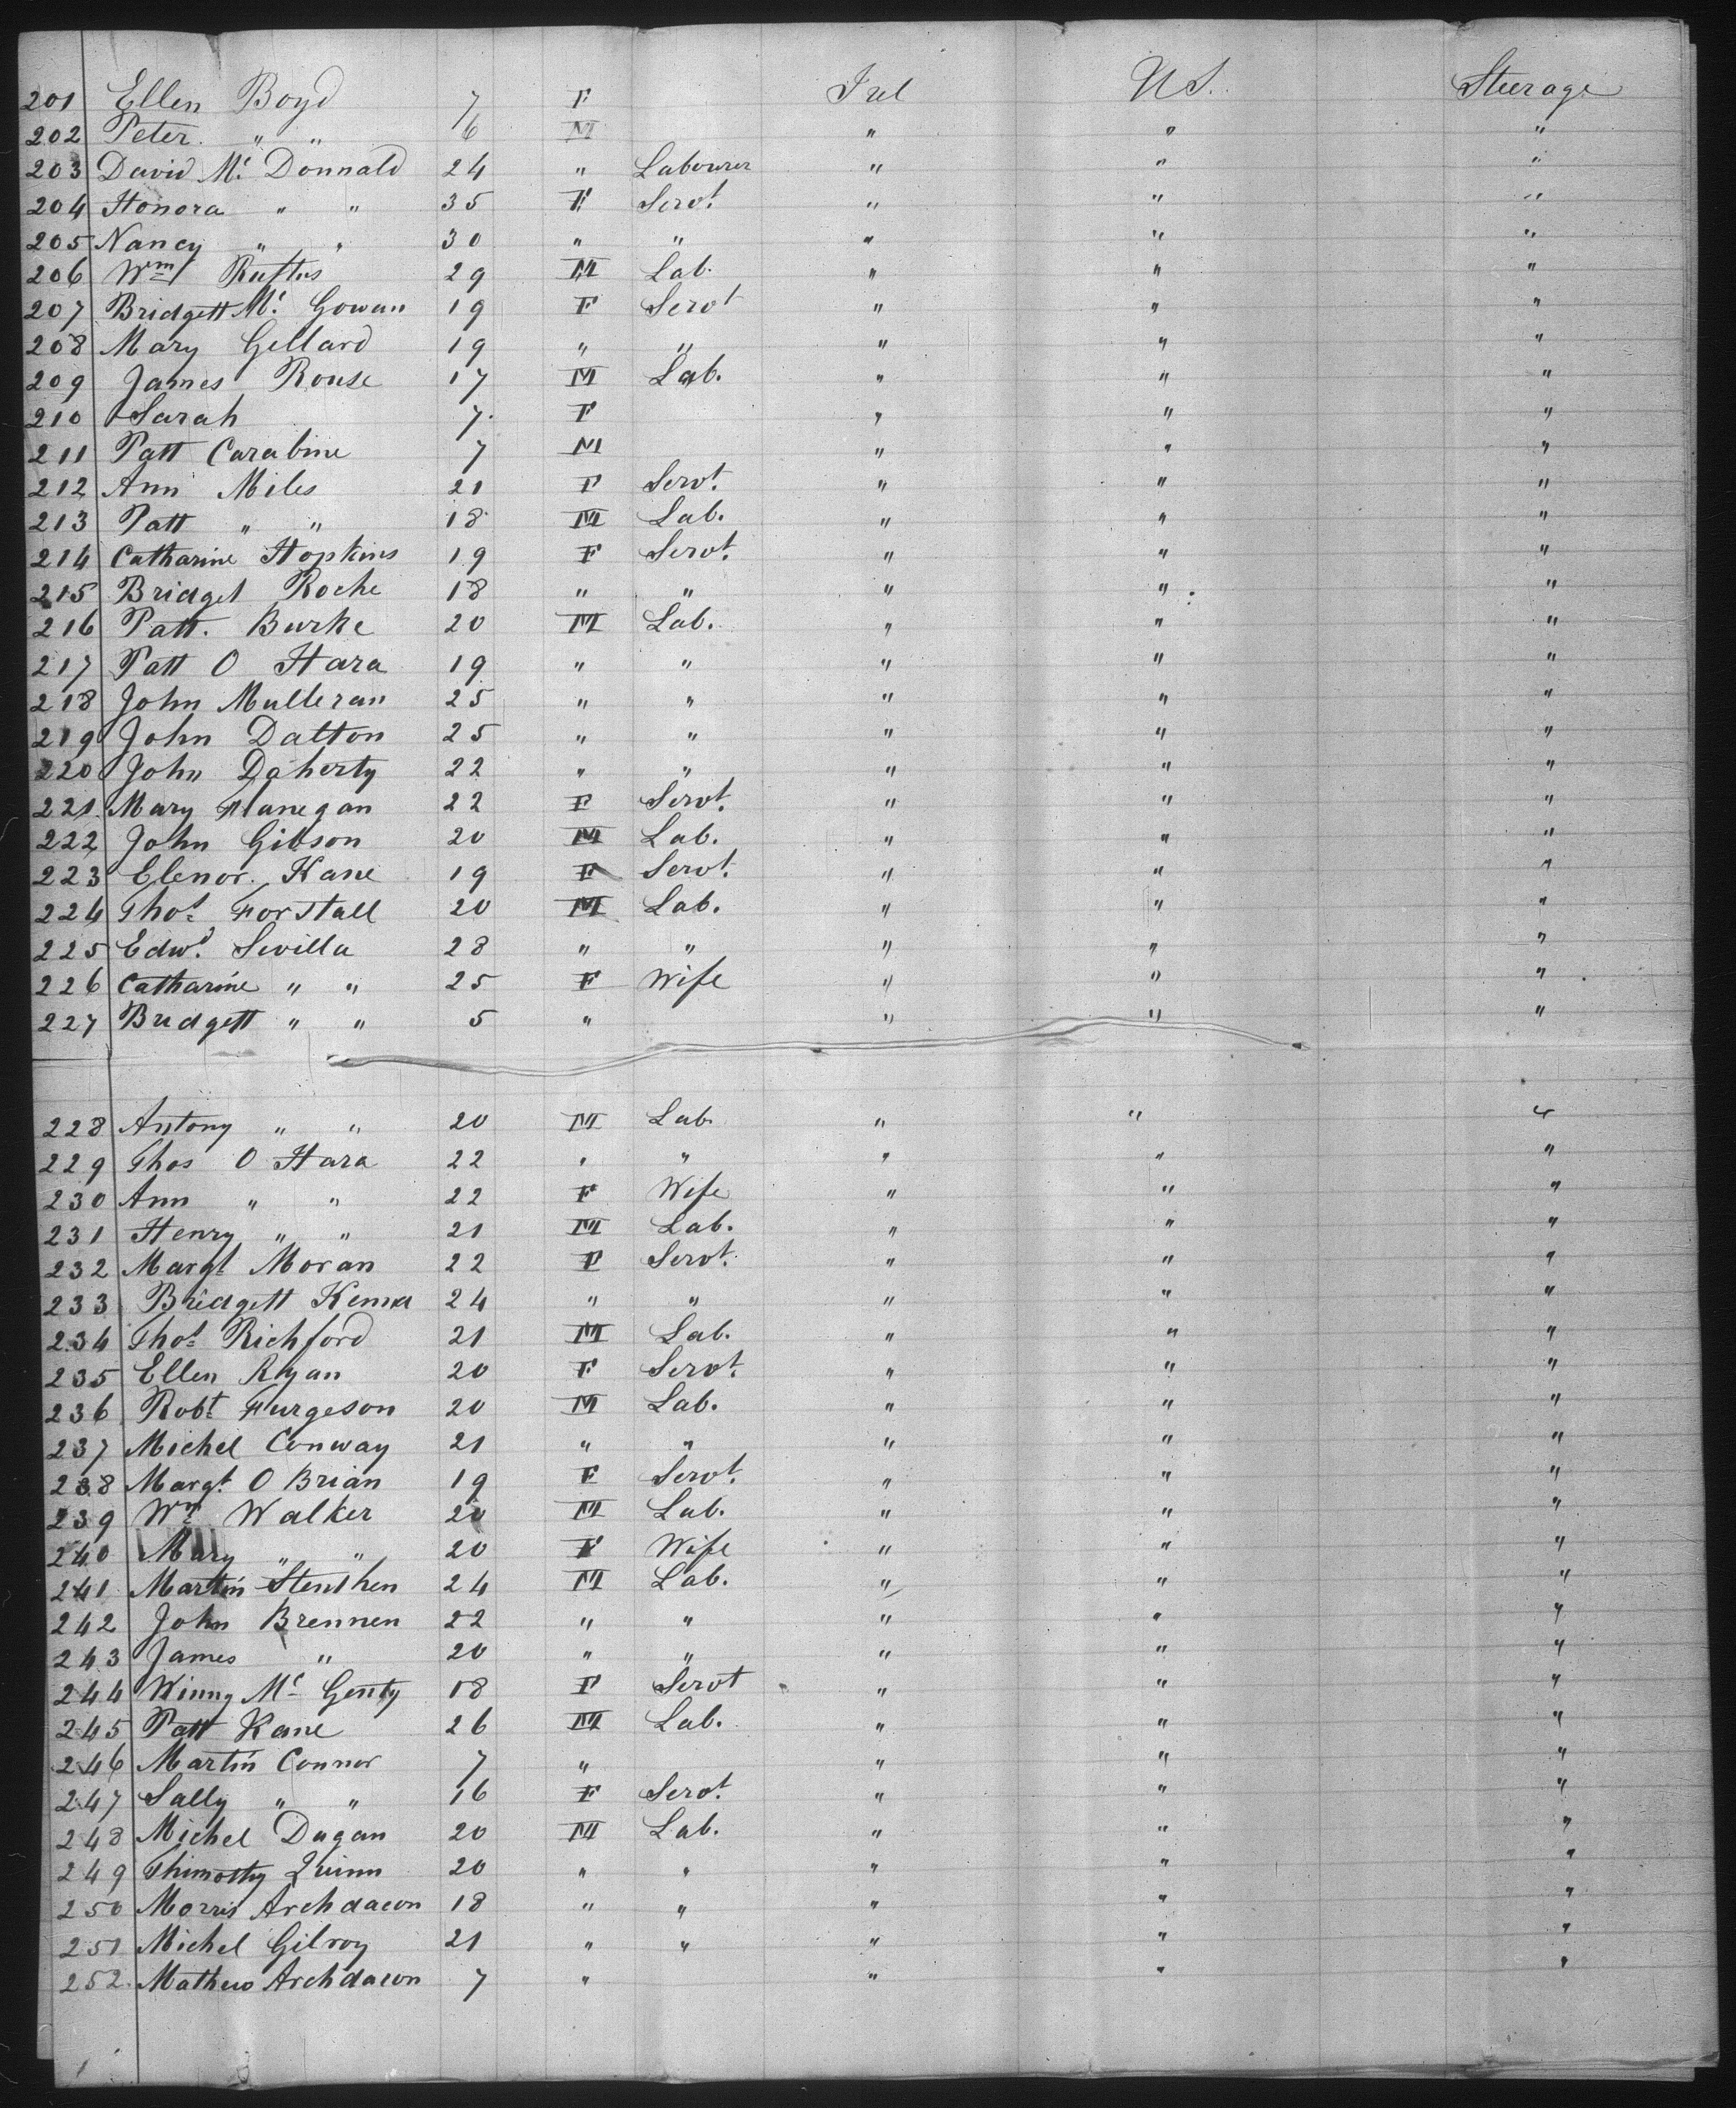 201 Ellen Boyd 7 F Irel U S. Steerage
202 Peter. " " 6 M " " "
203 David Mc. Donnald 24 " Labourer " " "
204 Honora " " 35 F Servt. " " "
205 Nancy " " 30 " " " " "
206 Wm Ruftus 29 M Lab. " " "
207 Bridgett Mc. Gowan 19 F Servt " " "
208 Mary Gellard 19 " " " " "
209 James Rouse 17 M Lab. " " "
210 Sarah 7. F " " "
211 Patt Carabine 7 M " " "
212 Ann Miles 21 F Servt. " " "
213 Patt " " 18 M Lab. " " "
214 Catharine Hopkins 19 F Servt. " " "
215 Bridget Roche 18 " " " " "
216 Patt. Burke 20 M Lab. " " "
217 Patt O Hara 19 " " " " "
218 John Mulleran 25 " " " " "
219 John Dalton 25 " " " " "
220 John Doherty 22 " " " " "
221. Mary Flanegan 22 F Servt. " " "
222 John Gibson 20 M Lab. " " "
223 Elenor. Kane 19 F Servt. " " "
224 Thos Forstall 20 M Lab. " " "
225 Edwd. Sevilla 28 " " " " "
226 Catharine " " 25 F Wife " " "
227 Bridgett " " 5 " " " "
228 Antony " " 20 M Lab. " " "
229 Thos O Hara 22 " " " " "
230 Ann " " 22 F Wife " " "
231 Henry " " 21 M Lab. " " "
232 Margt Moran 22 F Servt. " " "
233 Bridgett 24 " " " " "
234 Thos Richford 21 M Lab. " " "
235 Ellen Ryan 20 F Servt. " " "
236 Robt Furgeson 20 M Lab. " " "
237 Michel Conway 21 " " " " "
238 Margt. O Brian 19 F Servt. " " "
239 Wm Walker 20 M Lab. " " "
240 Mary " " 20 F Wife " " "
241 Martin 24 M Lab. " " "
242 John Brennen 22 " " " " "
243 James " 20 " " " " "
244 Winny Mc Genty 18 F Servt " " "
245 Patt Kane 26 M Lab. " " "
246 Martin Connor 7 " " " "
247 Sally " " 16 F Servt. " " "
248 Michel Dugan 20 M Lab. " " "
249 Thimothy Quinn 20 " " " " "
250 Morris Archdacon 18 " " " " "
251 Michel Gilroy 21 " " " " "
252. Mathew Archdacon 7 " " " "